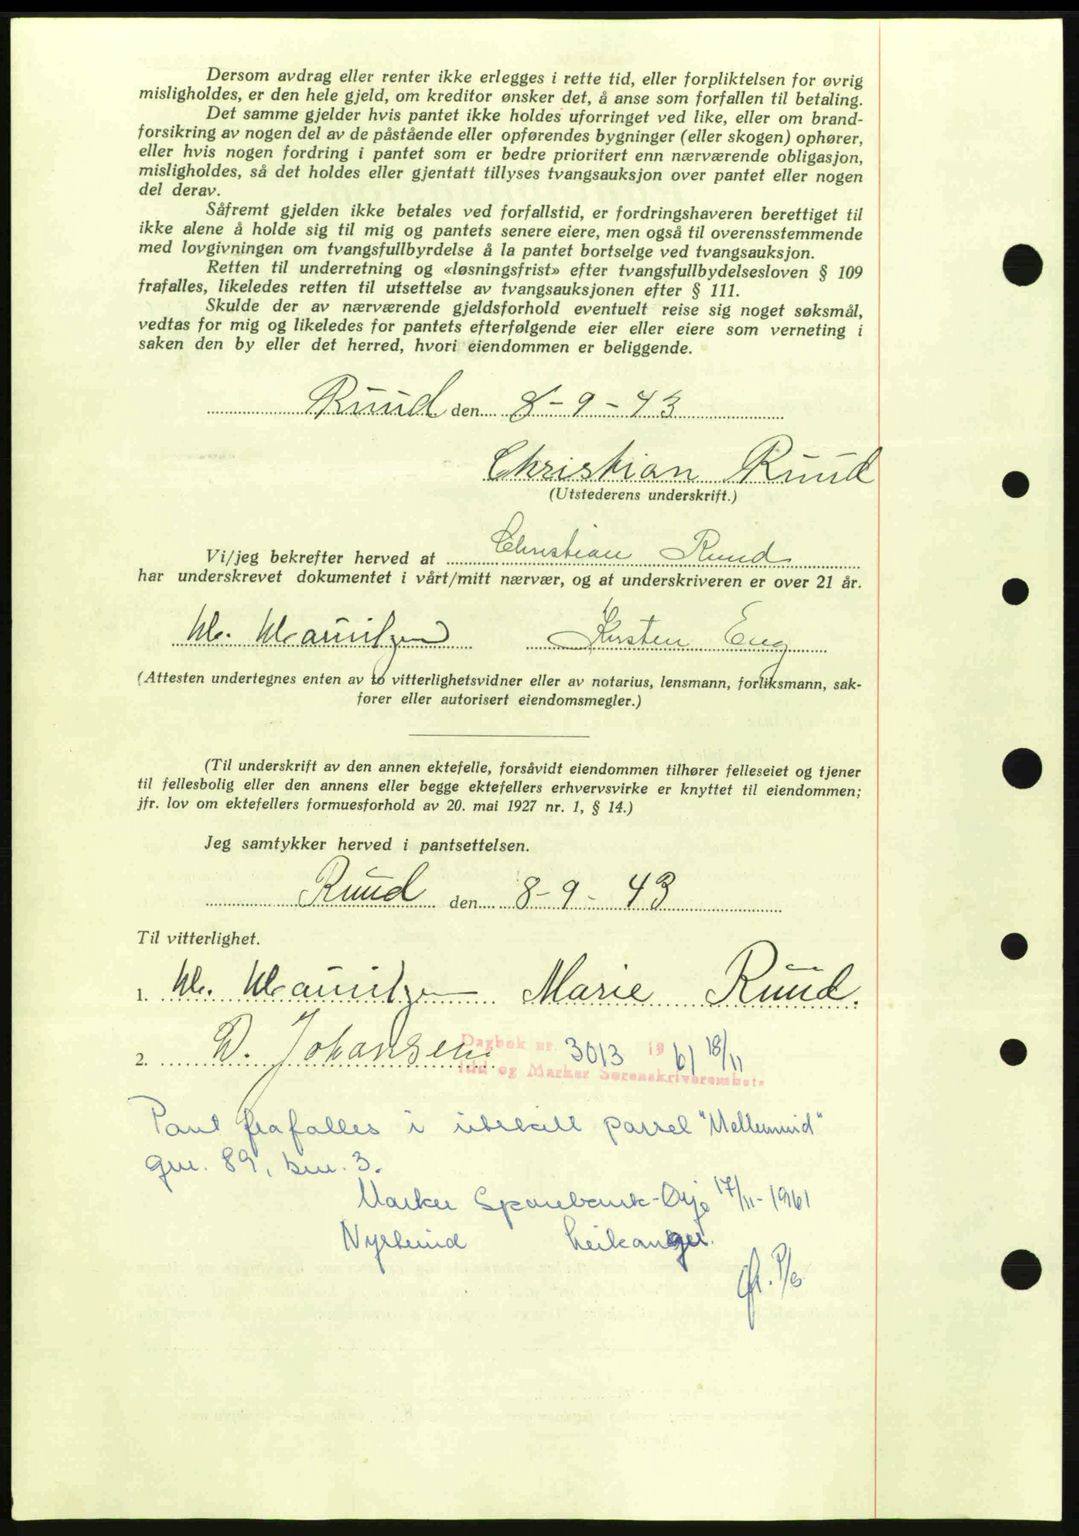 Dersom avdrag eller renter ikke erlegges i rette tid, eller forpliktelsen for øvrig
misligholdes, er den hele gjeld, om kreditor ønsker det, å anse som forfallen til betaling.
Det samme gjelder hvis pantet ikke holdes uforringet ved like, eller om brand-
forsikring av nogen del av de påstående eller opførendes bygninger (eller skogen) ophører,
eller hvis nogen fordring i pantet som er bedre prioritert enn nærværende obligasjon,
misligholdes, så det holdes eller gjentatt tillyses tvangsauksjon over pantet eller nogen
del derav.
Såfremt gjelden ikke betales ved forfallstid, er fordringshaveren berettiget til
ikke alene å holde sig til mig og pantets senere eiere, men også til overensstemmende
med lovgivningen om tvangsfullbyrdelse å la pantet bortselge ved tvangsauksjon.
Retten til underretning og «løsningsfrist» efter tvangsfullbydelsesloven § 109
frafalles, likeledes retten til utsettelse av tvangsauksjonen efter § 111.
Skulde der av nærværende gjeldsforhold eventuelt reise sig noget søksmål,
vedtas for mig og likeledes for pantets efterfølgende eier eller eiere som verneting i
saken den by eller det herred, hvori eiendommen er beliggende.
Ruud den 8-9-43
Christian Ruud
(Utstederens underskrift.)
Vi/jeg bekrefter herved at Christian Ruud
har underskrevet dokumentet i vårt/mitt nærvær, og at underskriveren er over 21 år.
Kirsten Eng
(Attesten undertegnes enten av to vitterlighetsvidner eller av notarius, lensmann, forliksmann, sak-
fører eller autorisert eiendomsmegler.)
(Til underskrift av den annen ektefelle, forsåvidt eiendommen tilhører felleseiet og tjener
til fellesbolig eller den annens eller begge ektefellers erhvervsvirke er knyttet til eiendommen;
jfr. lov om ektefellers formuesforhold av 20. mai 1927 nr. 1, § 14.)
Jeg samtykker herved i pantsettelsen.
Ruud den 8-9-43
Til vitterlighet.
1. Marie Ruud.
2. D. Johansen
Dagbok nr. 3013 1961 18/11
Idd og Marker Sorenskriverembete
Pant frafalles i utskilt parsel
gnr. 89, bnr. 3.
Marker Sparebank-Ørje 17/11-1961